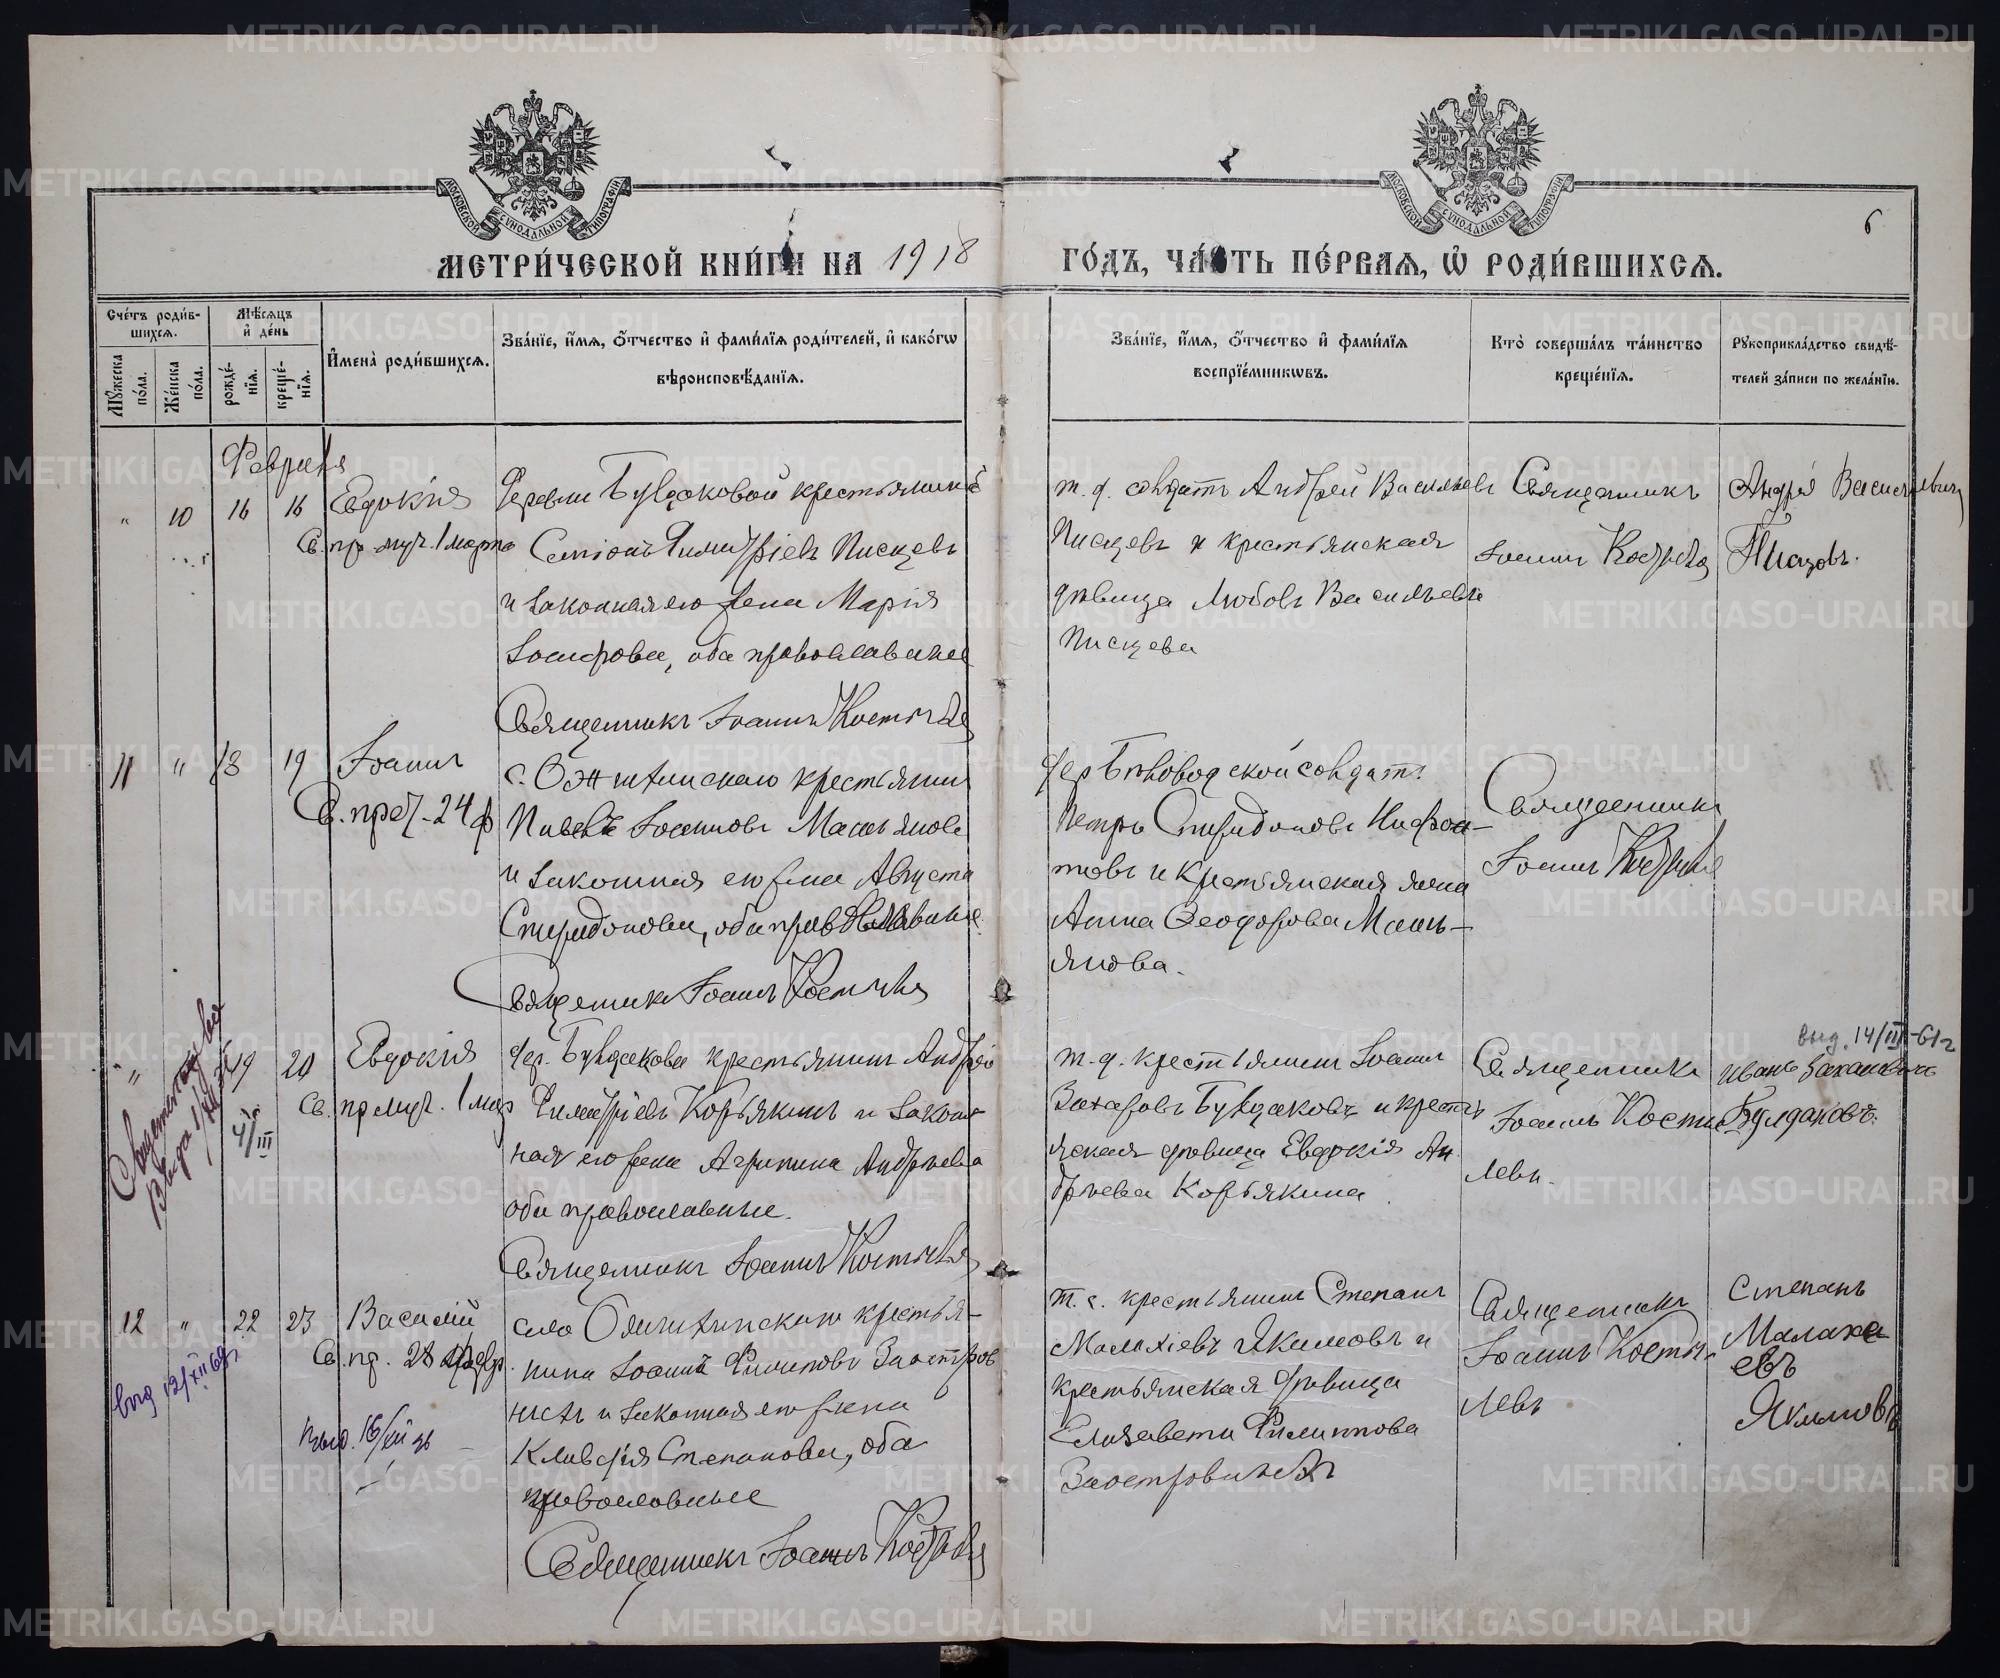 МЕТРИ́ЧЕСКОЙ КНИ́ГИ НА 1918 ГО́ДЪ, ЧА́СТЬ ПЕ́РВАѦ, Ѡ҆ РОДИ́ВШИХСѦ.
6
МОСКОВСКОЙ СѴНОДАЛЬНОЙ ТИПОГРАФІИ
МОСКОВСКОЙ СѴНОДАЛЬНОЙ ТИПОГРАФІИ
Сче́тъ роди́в-
шихсѧ.
Мѣ́сѧцъ
и҆ де́нь
Мꙋ́жеска по́ла.
Же́нска по́ла.
рожде́-
нїѧ.
креще́-
нїѧ.
И҆мена̀ роди́вшихсѧ.
Зва́нїе, и҆́мѧ, ѻ҆́тчество и҆ фами́лїѧ роди́телей, и҆ како́гѡ
вѣроисповѣ́данїѧ.
Зва́нїе, и҆́мѧ, ѻ҆́тчество и҆ фами́лїѧ
воспрїе́мникѡвъ.
Кто̀ соверша́лъ та́инство
креще́нїѧ.
Рꙋкоприкла́дство свидѣ́-
телей за́писи по жела́нїю.
Февраля
" 10 16 16 Евдокія
Св. пр. муч. 1 марта
Деревни Булдаковой крестьянинъ
Симіонъ Димитріевъ Писцевъ
и законная его жена Марія
Іосифова, оба православные
Священникъ Іоаннъ Костылевъ
т. д. солдатъ Андрей Васильевъ
Писцевъ и крестьянская
дѣвица Любовь Васильева
Писцева
Священникъ
Іоаннъ Костылевъ
Андрей Васильевичъ
Писцовъ.
11 " 18 19 Іоаннъ
Св. прор. 24 ф
крестьянинъ
Павелъ Іоанновъ Масьяновъ
и законная его жена Августа
Спиридонова, оба православные.
Священникъ Іоаннъ Костылевъ
дер. Бѣловодской солдатъ
Петръ Спиридоновъ Нифон-
товъ и крестьянская жена
Анна Ѳеодорова Мась-
янова.
Священникъ
Іоаннъ Костылевъ
" 19 20 Евдокія
Св. пр. муч. 1 мар
4/III
дер. Булдакова крестьянинъ Андрей
Димитріевъ Корьякинъ и закон-
ная его жена Агрипина Андреева
оба православные.
Священникъ Іоаннъ Костылевъ
т. д. крестьянинъ Іоаннъ
Захаровъ Булдаковъ и кресть
янская дѣвица Евдокія Ан
дреева Корьякина.
Священникъ
Іоаннъ Косты
левъ.
выд. 14/III-61г
Иванъ
Булдаковъ.
12 " 22 23 Василій
Св. пр. 28 февр.
выд 12/XII 69г
село крестья-
нинъ Іоаннъ Филиповъ Заостров
ныхъ и законная его жена
Клавдія Степанова, оба
православные
Священникъ Іоаннъ Костылевъ
т. с. крестьянинъ Степанъ
Малахіевъ Якимовъ и
крестьянская дѣвица
Елизавета Филиппова
Заостровныхъ
Священникъ
Іоаннъ Косты-
левъ
Степанъ
Малахе
евъ
Якимовъ
METRIKI.GASO-URAL.RU